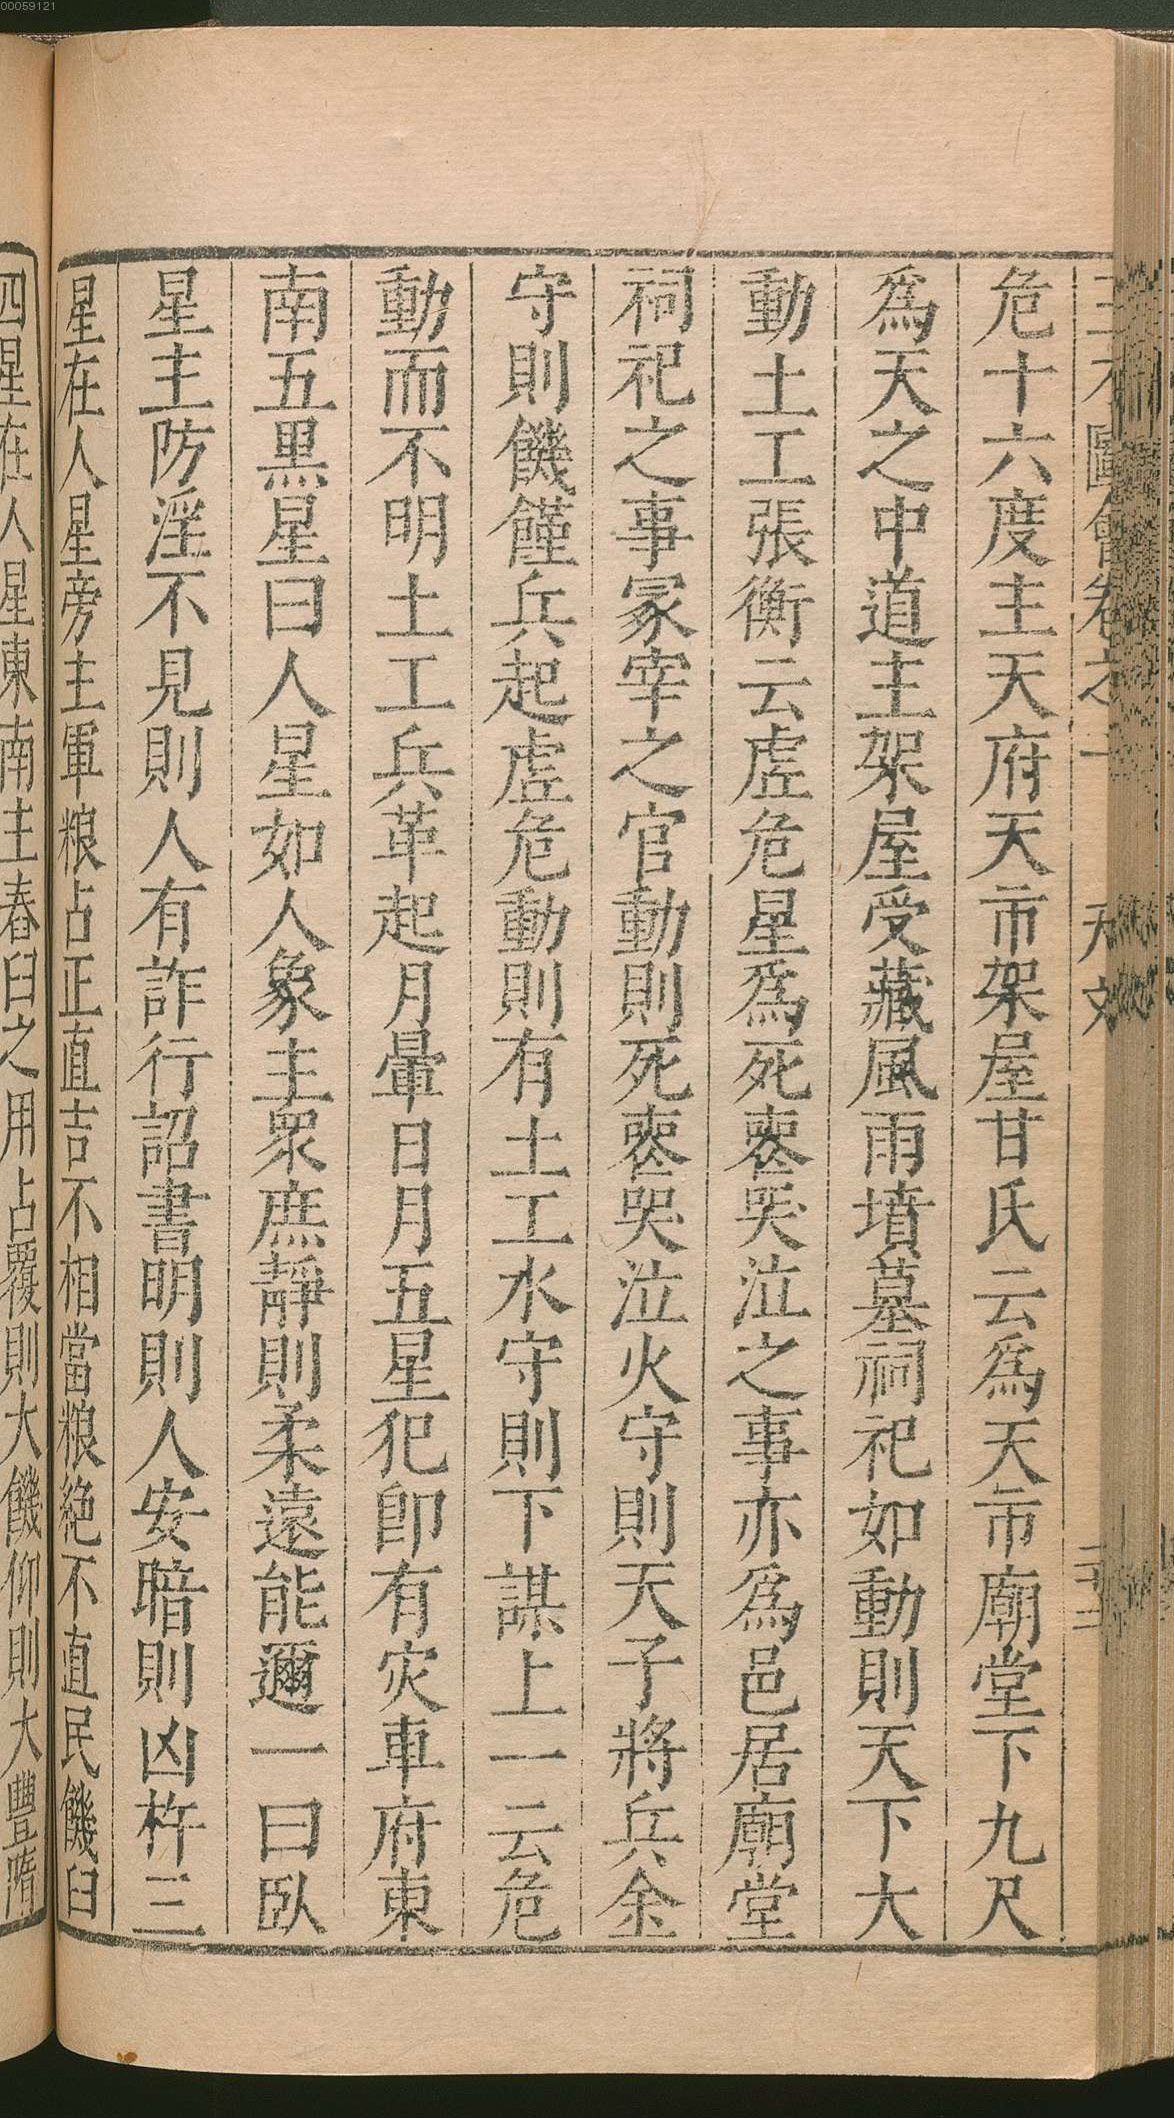 00059121
圖會卷之一 天文
危十六度主天府天市架屋甘氏云爲天市廟堂下九尺
爲天之中道主架屋受藏風雨墳墓祠祀如動則天下大
動土工張衡云虛危星爲死喪哭泣之事亦爲邑居廟堂
祠祀之事冢宰之官動則死喪哭泣火守則天子將兵金
守則饑饉兵起虛危動則有土工水守則下謀上一云危
動而不明土工兵革起月暈日月五星犯卽有灾車府東
南五黑星曰人星如人象主衆庶靜則柔遠能邇一曰臥
星主防淫不見則人有詐行詔書明則人安暗則凶杵三
星在人星旁主軍粮占正直吉不相當粮絕不直民饑臼
四星在人星東南主舂臼之用占覆則大饑仰則大豐隋